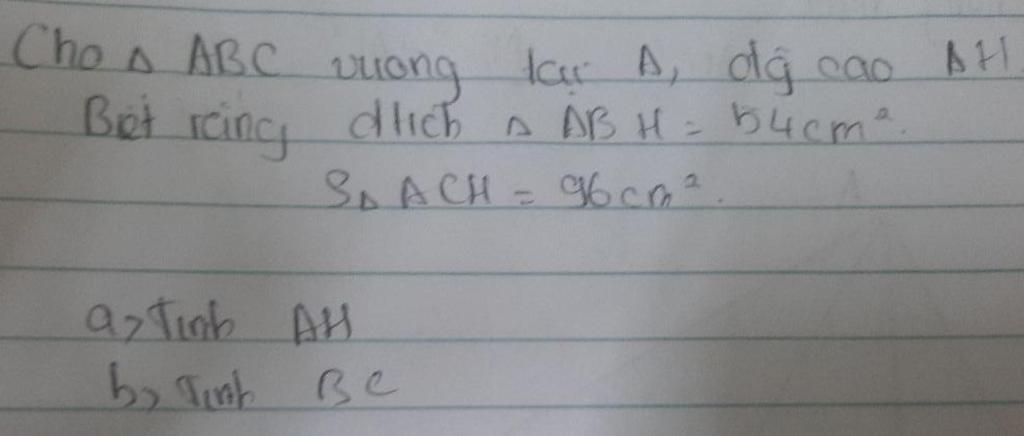 Cho Δ ABC vuong tại A, đg cao AH.
Biết rằng dtich Δ ABH = 54cm².
SΔ ACH = 96cm².
a, Tinh AH
b, Tinh BC